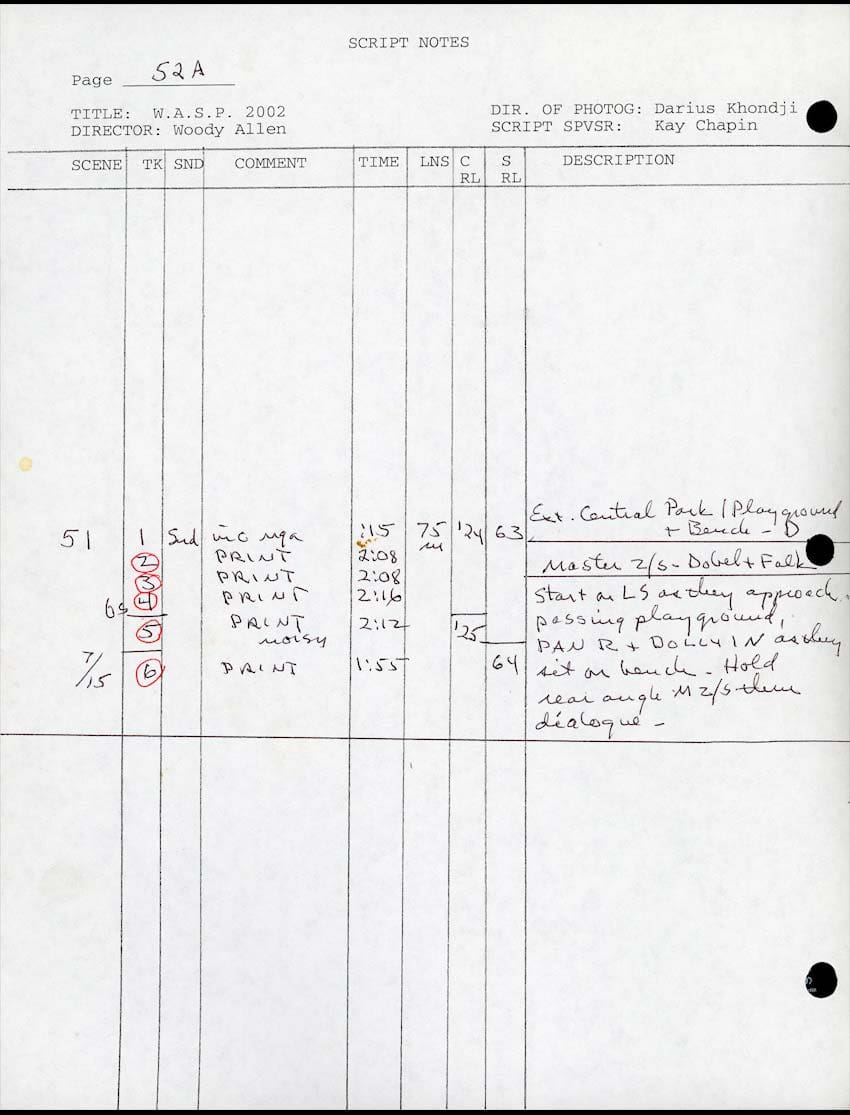 SCRIPT NOTES
Page 52A
TITLE: W.A.S.P. 2002
DIRECTOR: Woody Allen
DIR. OF PHOTOG: Darius Khondji
SCRIPT SPVSR: Kay Chapin
SCENE TK SND COMMENT TIME LNS C RL S RL DESCRIPTION
Ext. Central Park / Playground
+ Bench - D
51 1 Snd inc nga :15 75 '24 63
2 PRINT 2:08
3 PRINT 2:08
4 PRINT 2:16
5 PRINT 2:12 '25
noisy
7/15 6 PRINT 1:55 64
Master 2/s - Dobel + Falk
Start on LS as they approach
passing playground,
PAN R + DOLLY IN as they
sit on bench - Hold
rear angle M 2/s them
dialogue -